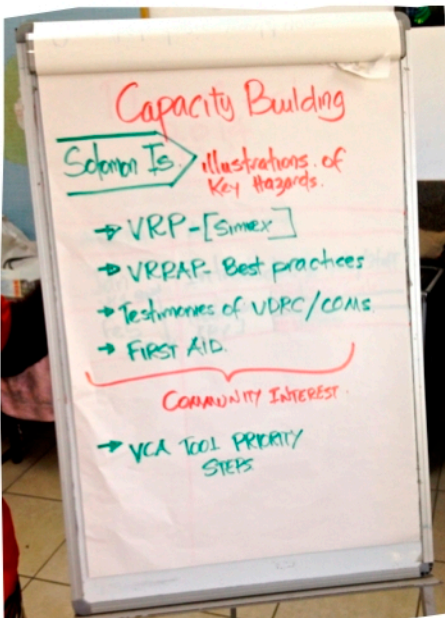 Capacity Building
Solomon Is. illustrations of
Key Hazards.
→ VRP-[Simex]
→ VRPAP- Best practices
→ Testimonies of VDRC/COMs.
→ FIRST AID.
COMMUNITY INTEREST.
→ VCA TOOL PRIORITY
STEPS.